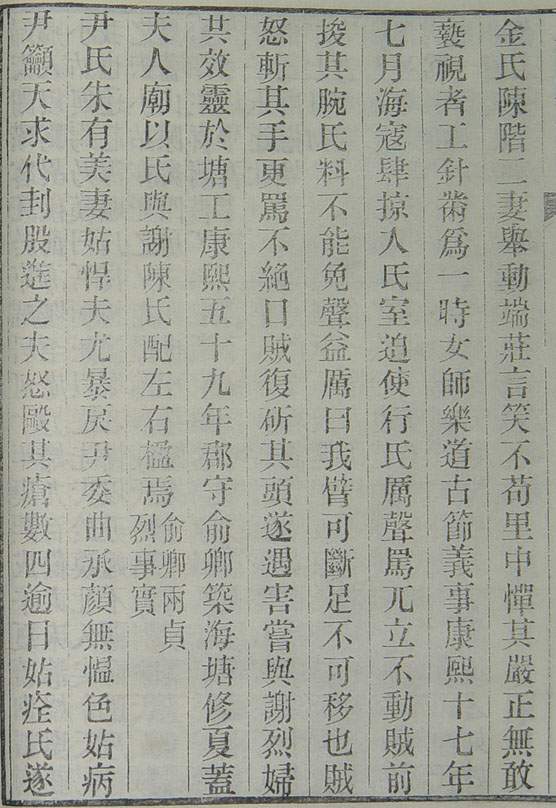 金氏陳階二妻舉動端莊言笑不苟里中憚其嚴正無敢
褻視者工針黹爲一時女師樂道古節義事康熙十七年
七月海寇肆掠入氏室迫使行氏厲聲罵兀立不動賊前
捘其腕氏料不能免聲益厲曰我臂可斷足不可移也賊
怒斬其手更罵不絕口賊復斫其頭遂遇害嘗與謝烈婦
共效靈於塘工康熙五十九年郡守俞卿築海塘修夏蓋
夫人廟以氏與謝陳氏配左右楹焉俞卿兩貞
烈事實
尹氏朱有美妻姑悍夫尤暴戾尹委曲承顏無慍色姑病
尹籲天求代刲股進之夫怒毆其瘡數四逾日姑痊氏遂